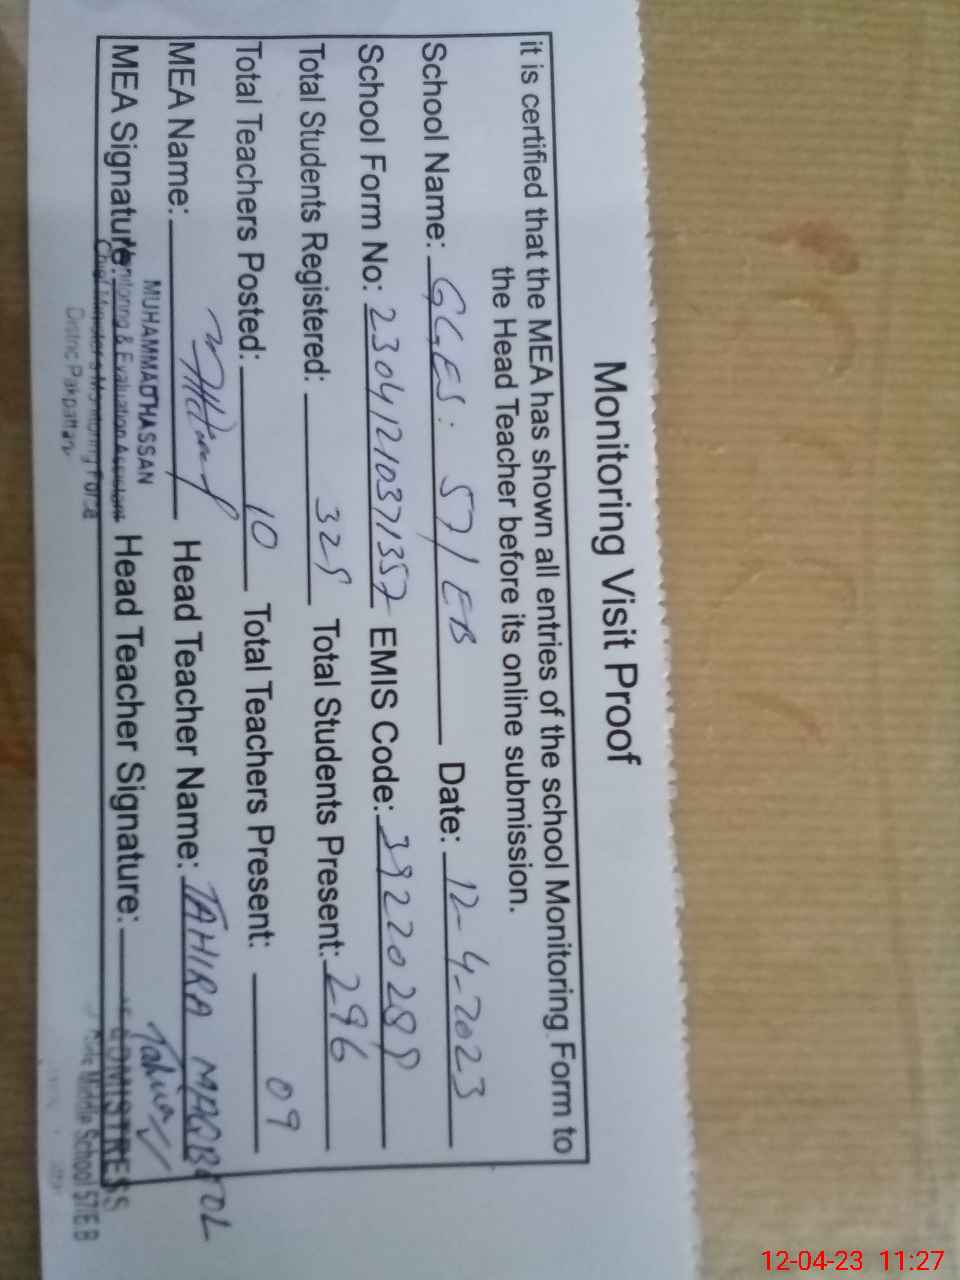 Monitoring Visit Proof
it is certified that the MEA has shown all entries of the school Monitoring Form to
the Head Teacher before its online submission.
School Name: GGES: 57/EB Date: 12-4-2023
School Form No: 23041210371357 EMIS Code: 39220289
Total Students Registered: 325 Total Students Present: 296
Total Teachers Posted: 10 Total Teachers Present: 09
MEA Name: Head Teacher Name: TAHIRA MAQBOOL
MUHAMMAD HASSAN
MEA Signature: Head Teacher Signature: Tahira
Monitoring & Evaluation Assistant
Chief Minister's Monitoring Force
District Pakpattan
Middle School 57/E.B
12-04-23 11:27